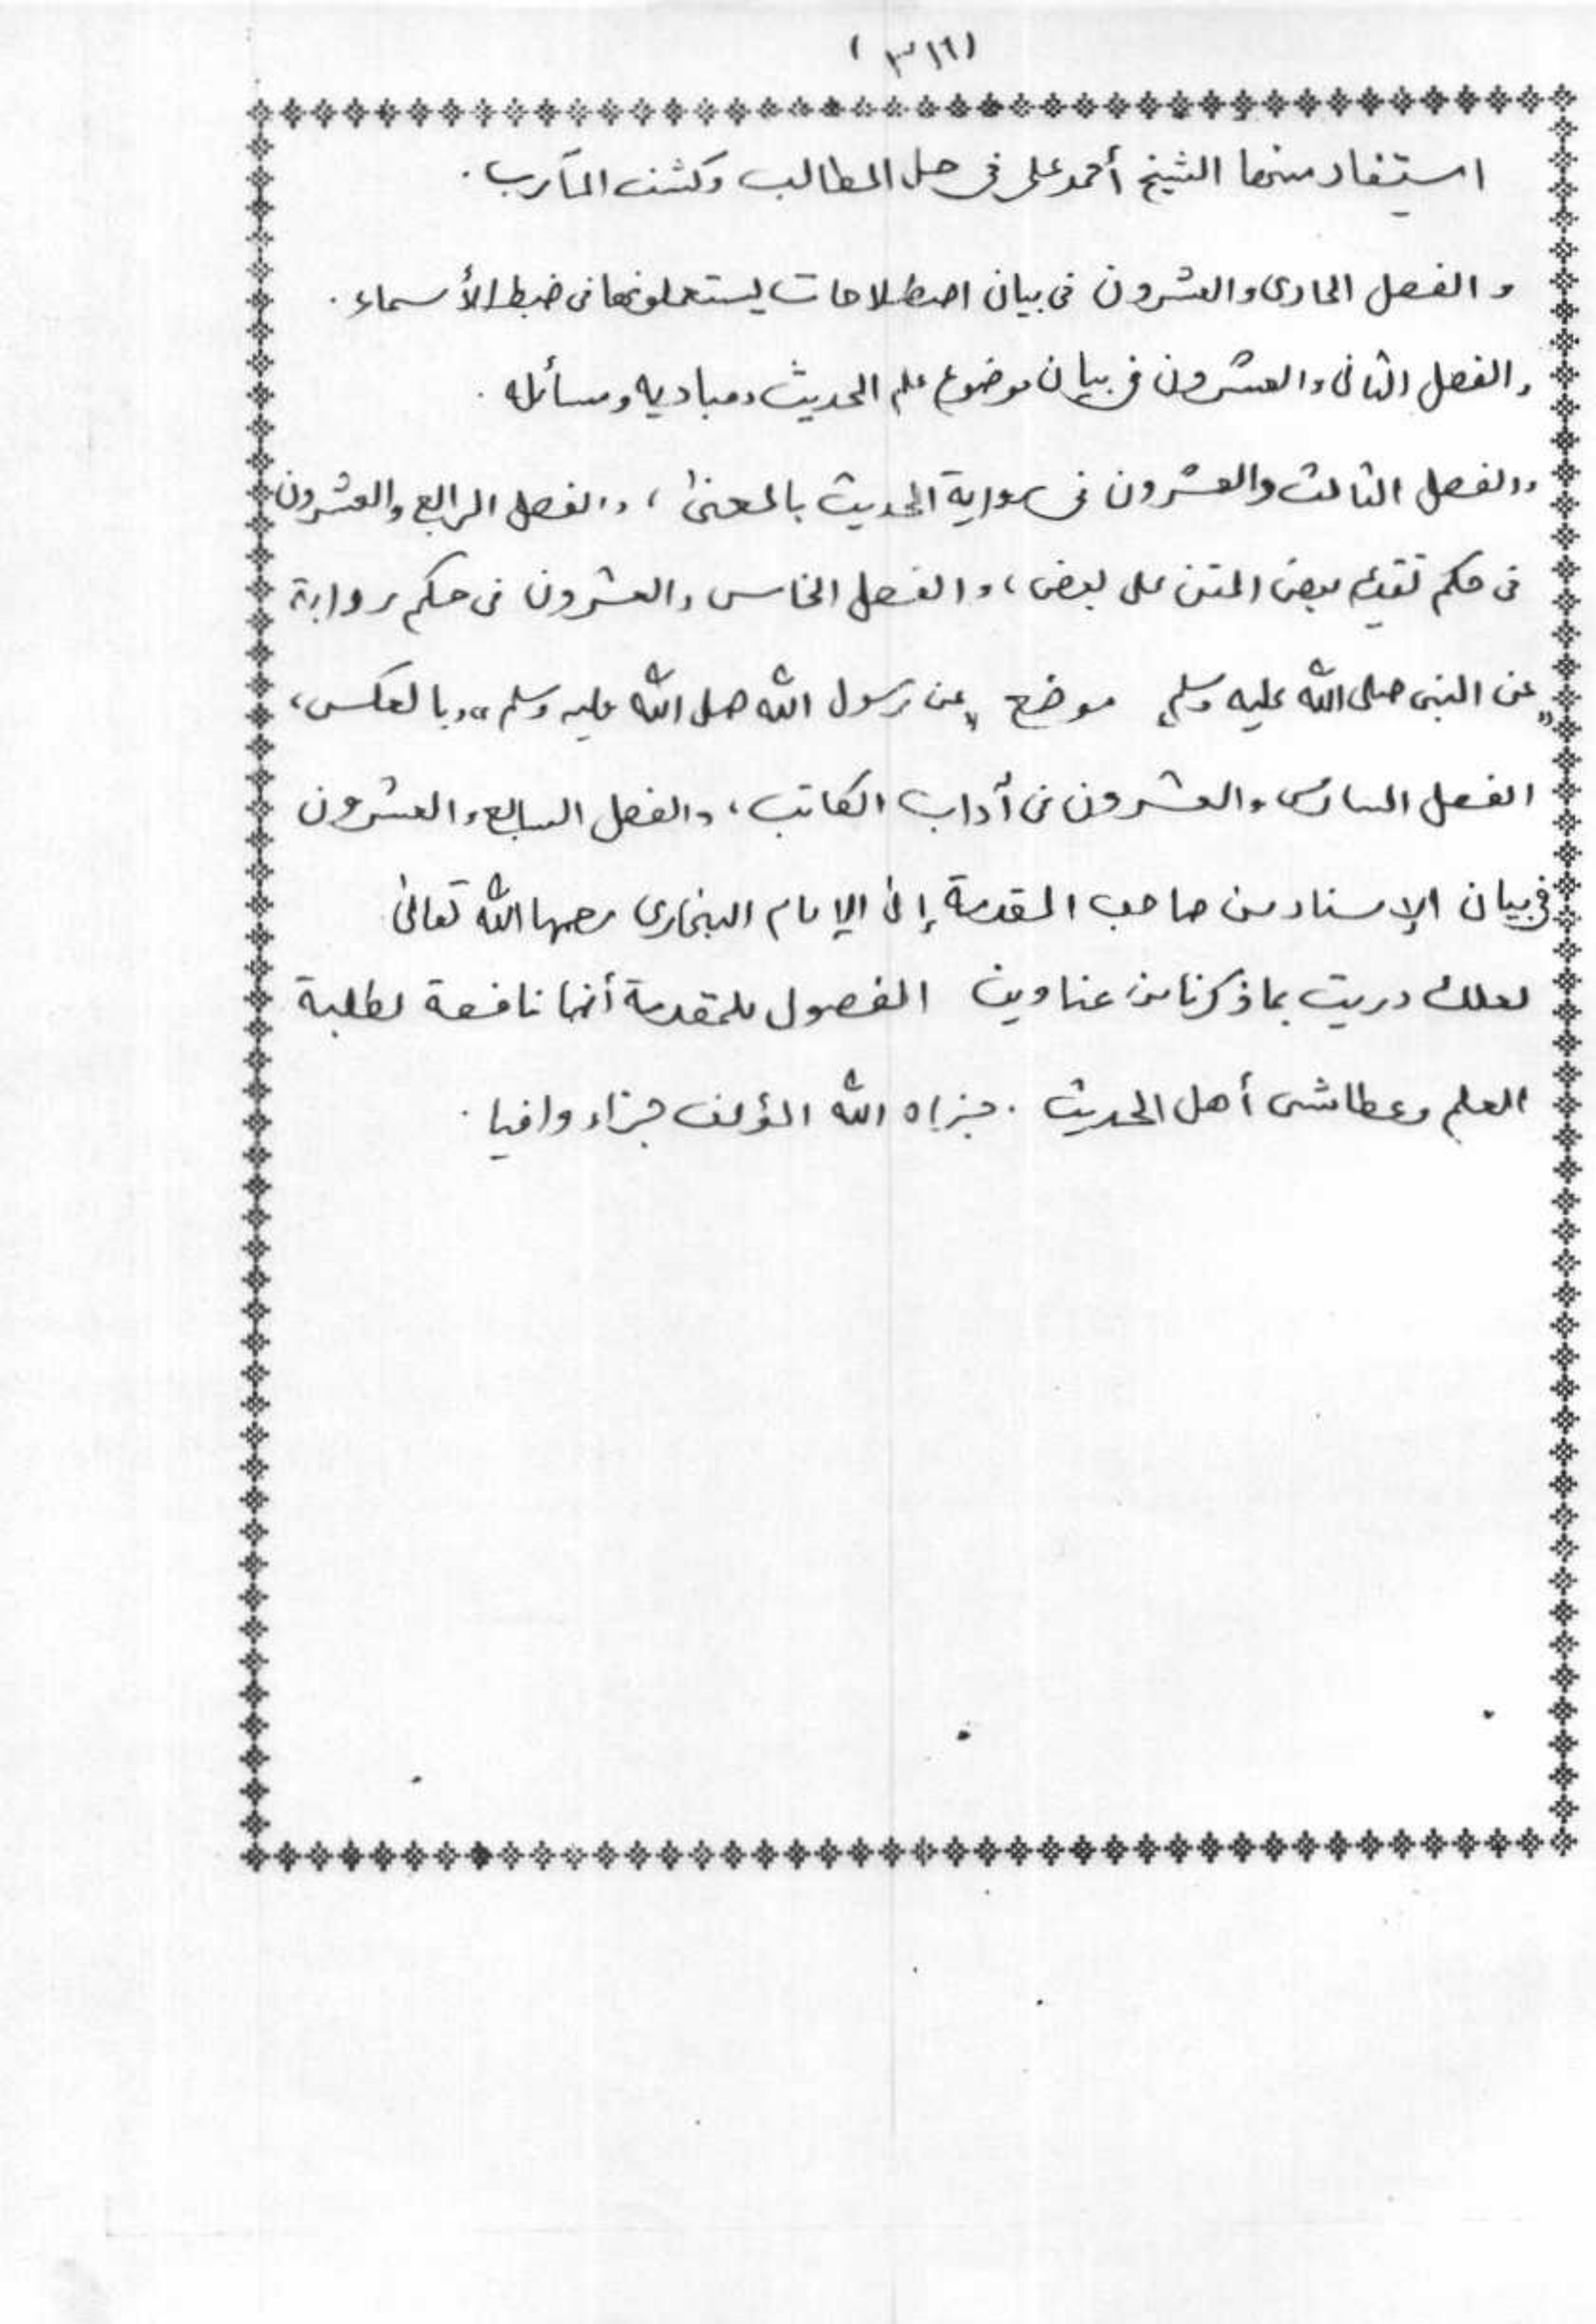 (٣١٦)
استفاد منها الشيخ أحمد على فى حل المطالب وكشف المآرب.
و الفصل الحادى والعشرون فى بيان اصطلاحات يستعملونها فى ضبط الأسماء.
والفصل الثانى والعشرون فى بيان موضوع علم الحديث ومباديه ومسائله.
والفصل الثالث والعشرون فى رواية الحديث بالمعنى، والفصل الرابع والعشرون
فى حكم تقديم بعض المتن على بعض، والفصل الخامس والعشرون فى حكم رواية
"عن النبى صلى الله عليه وسلم" موضع "عن رسول الله صلى الله عليه وسلم" وبالعكس،
الفصل السادس والعشرون فى أداب الكاتب، والفصل السابع والعشرون
فى بيان الإسناد من صاحب المقدمة إلى الإمام البخارى رحمهما الله تعالى
لعلك دريت بما ذكرنا من عناوين الفصول للمقدمة أنها نافعة لطلبة
العلم وعطاشى أهل الحديث. جزاه الله المؤلف جزاء وافيا.